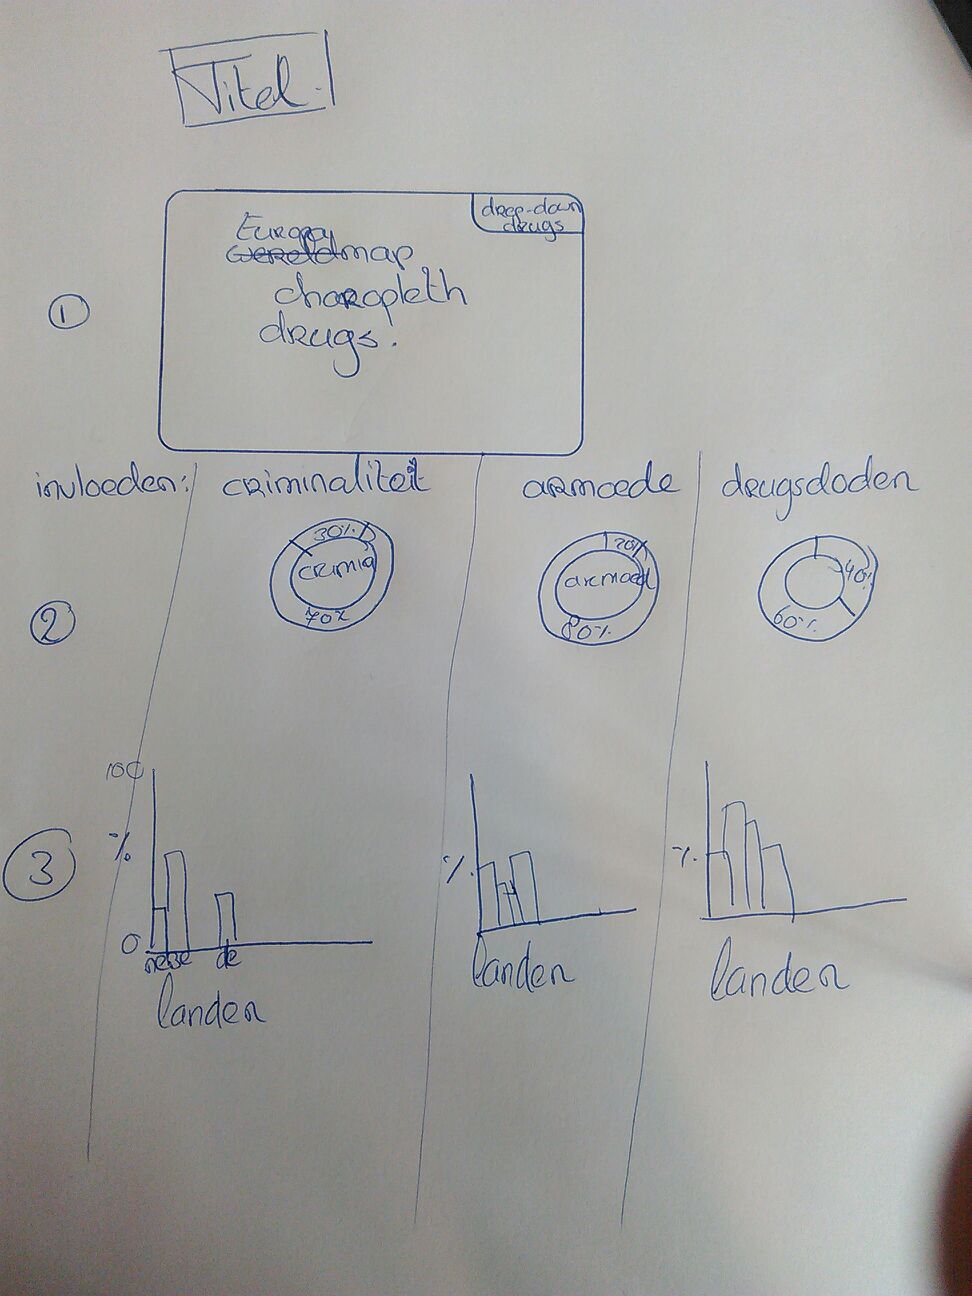 Titel.
drop-down
drugs
Europa
wereldmap
choropleth
drugs!
1
invloeden: criminaliteit armoede drugsdoden
30%
70%
20%
armoed
80%
40%
60%
2
100
%
0
3
de
landen
%
landen
%
landen